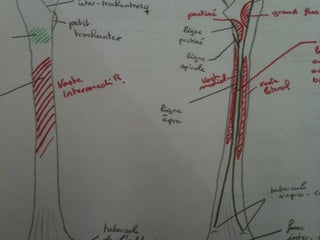 inter-trochantériq
petit
trochanter
Vaste
intermédi R.
tubercule
pectiné
grand fess
ligne
pectiné
ligne
spirale
Vaste
médial
vaste
latéral
ligne
âpre
tubercule
supra-c
fosse
inter-